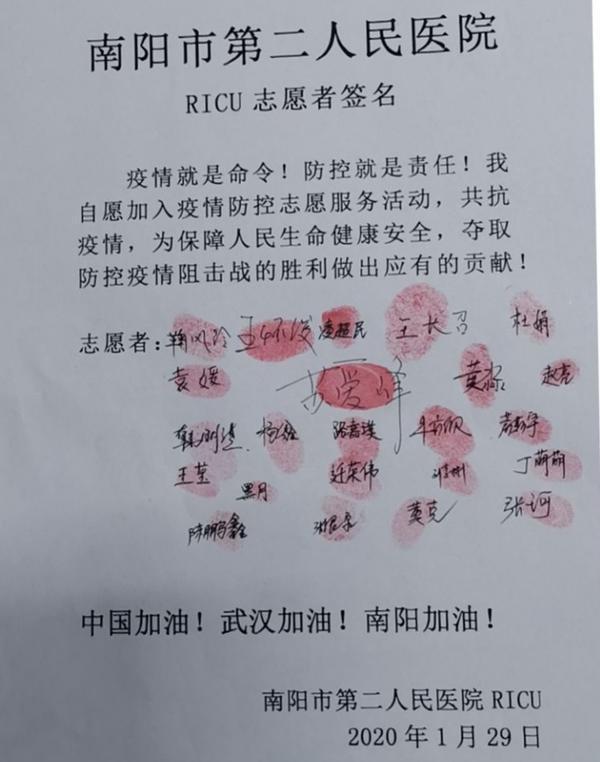 南阳市第二人民医院
RICU 志愿者签名
疫情就是命令！防控就是责任！我
自愿加入疫情防控志愿服务活动，共抗
疫情，为保障人民生命健康安全，夺取
防控疫情阻击战的胜利做出应有的贡献！
志愿者： 王怀滨 凌超民 王长召 杜娟
袁媛 苏爱峰 黄淼 赵亮
杨鑫
王莹 黑月 丁萌萌
陈鹏鑫 莫克 张河
中国加油！武汉加油！南阳加油！
南阳市第二人民医院 RICU
2020 年 1 月 29 日